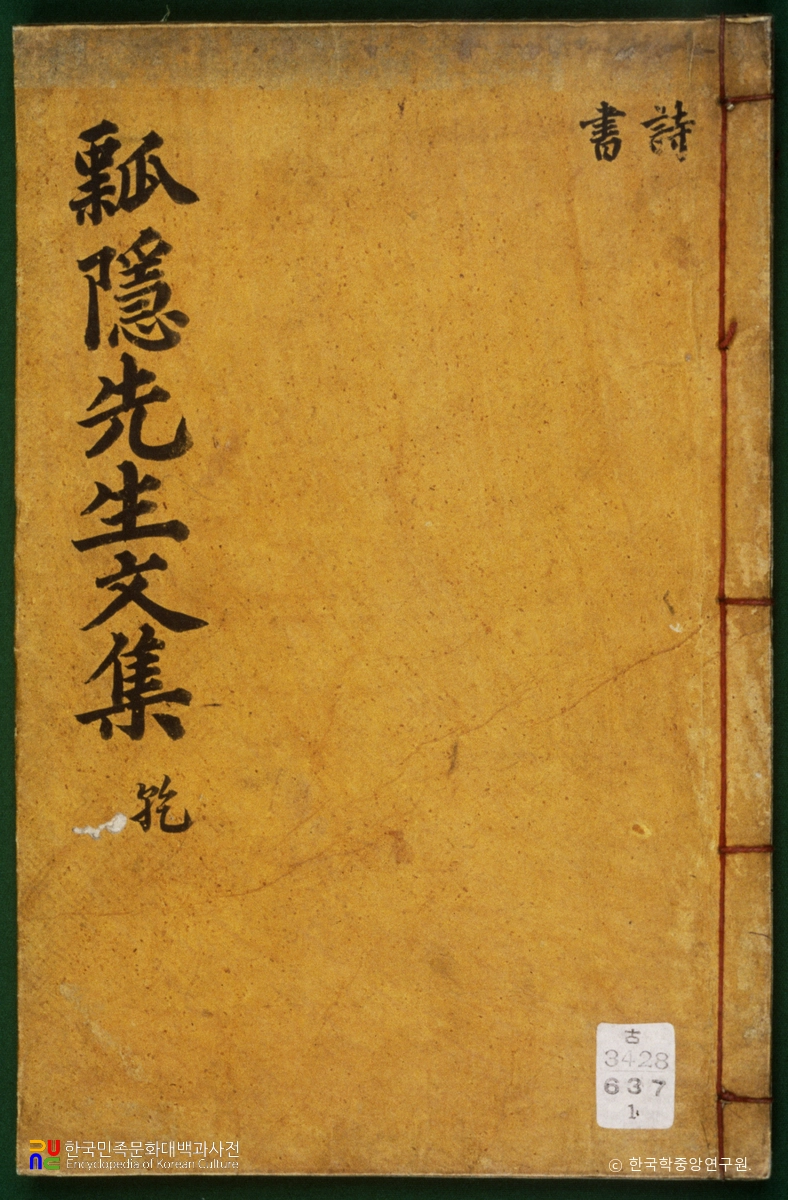 詩
書
瓢隱先生文集 乾
古
3428
637
1
한국민족문화대백과사전
Encyclopedia of Korean Culture
© 한국학중앙연구원